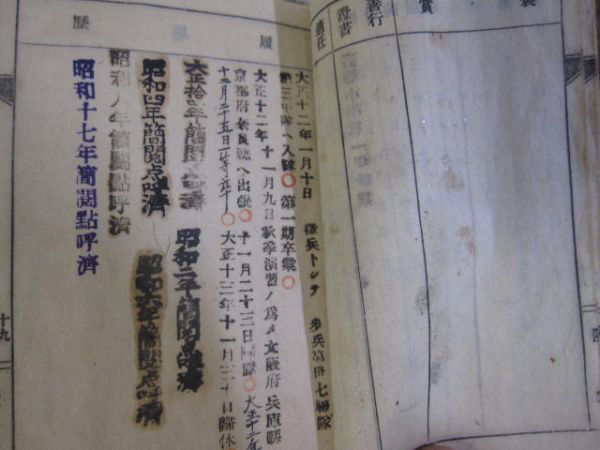 賞
善行
證書
適任
履歴
大正十二年一月十日 徴兵トシテ 歩兵第卅七聯隊
第三中隊ヘ入隊〇第一期卒業〇
大正十二年十一月九日秋季演習ノ爲メ大阪府兵庫縣
京都府奈良縣ヘ出張〇十一月二十三日歸隊〇大正十二年
十二月二十五日一等卒〇大正十三年十一月三十日歸休
昭和二年簡閲点呼濟
昭和四年簡閲点呼濟
昭和六年簡閲点呼濟
昭和八年簡閲點呼濟
昭和十七年簡閲點呼濟
十九